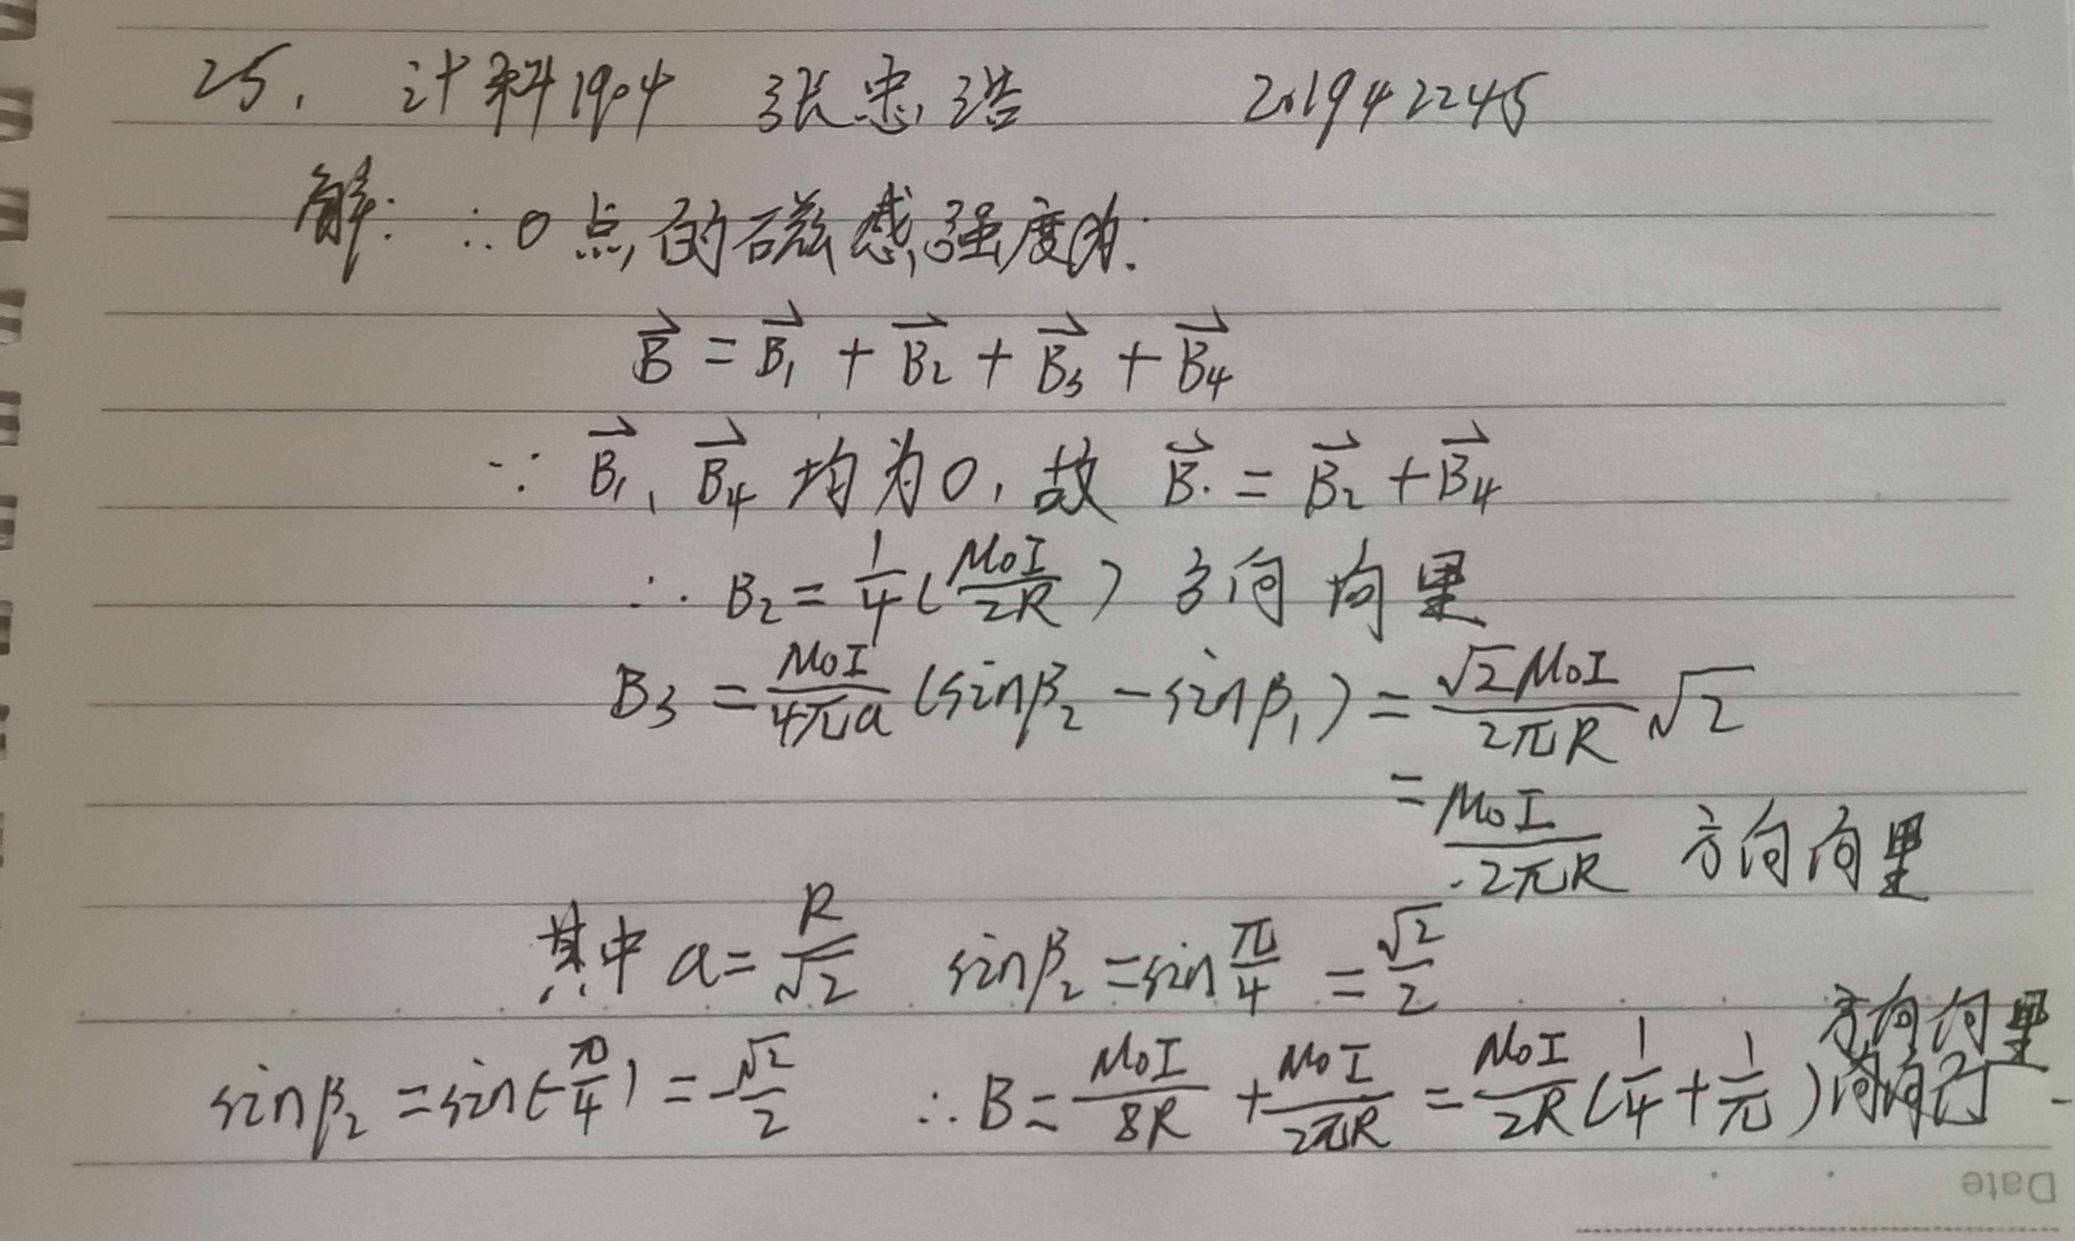 25. 计科1904 张忠浩 201942245
解: ∴O点的磁感强度为:
B⃗ = B⃗₁ + B⃗₂ + B⃗₃ + B⃗₄
∵ B⃗₁、B⃗₄ 均为0, 故 B⃗ = B⃗₂ + B⃗₄
∴ B₂ = 1/4 (μ₀I/2R) 方向向里
B₃ = μ₀I/4πa (sinβ₂ - sinβ₁) = √2μ₀I/2πR √2
= μ₀I/2πR 方向向里
其中 a = R/√2 sinβ₂ = sin π/4 = √2/2
方向向里
sinβ₂ = sin(-π/4) = -√2/2 ∴ B = μ₀I/8R + μ₀I/2πR = μ₀I/2R (1/4 + 1/π)
Date